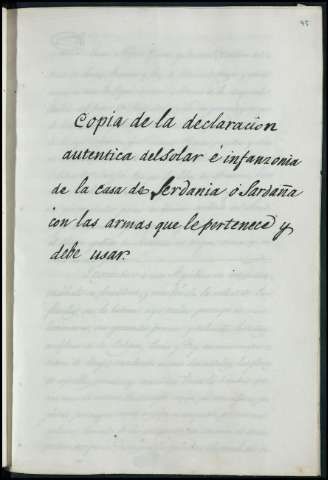 45
Copia de la declaracion
autentica del Solar é infanzonia
de la casa de Serdania ó Sardaña
con las armas que le pertenece y
debe usar.